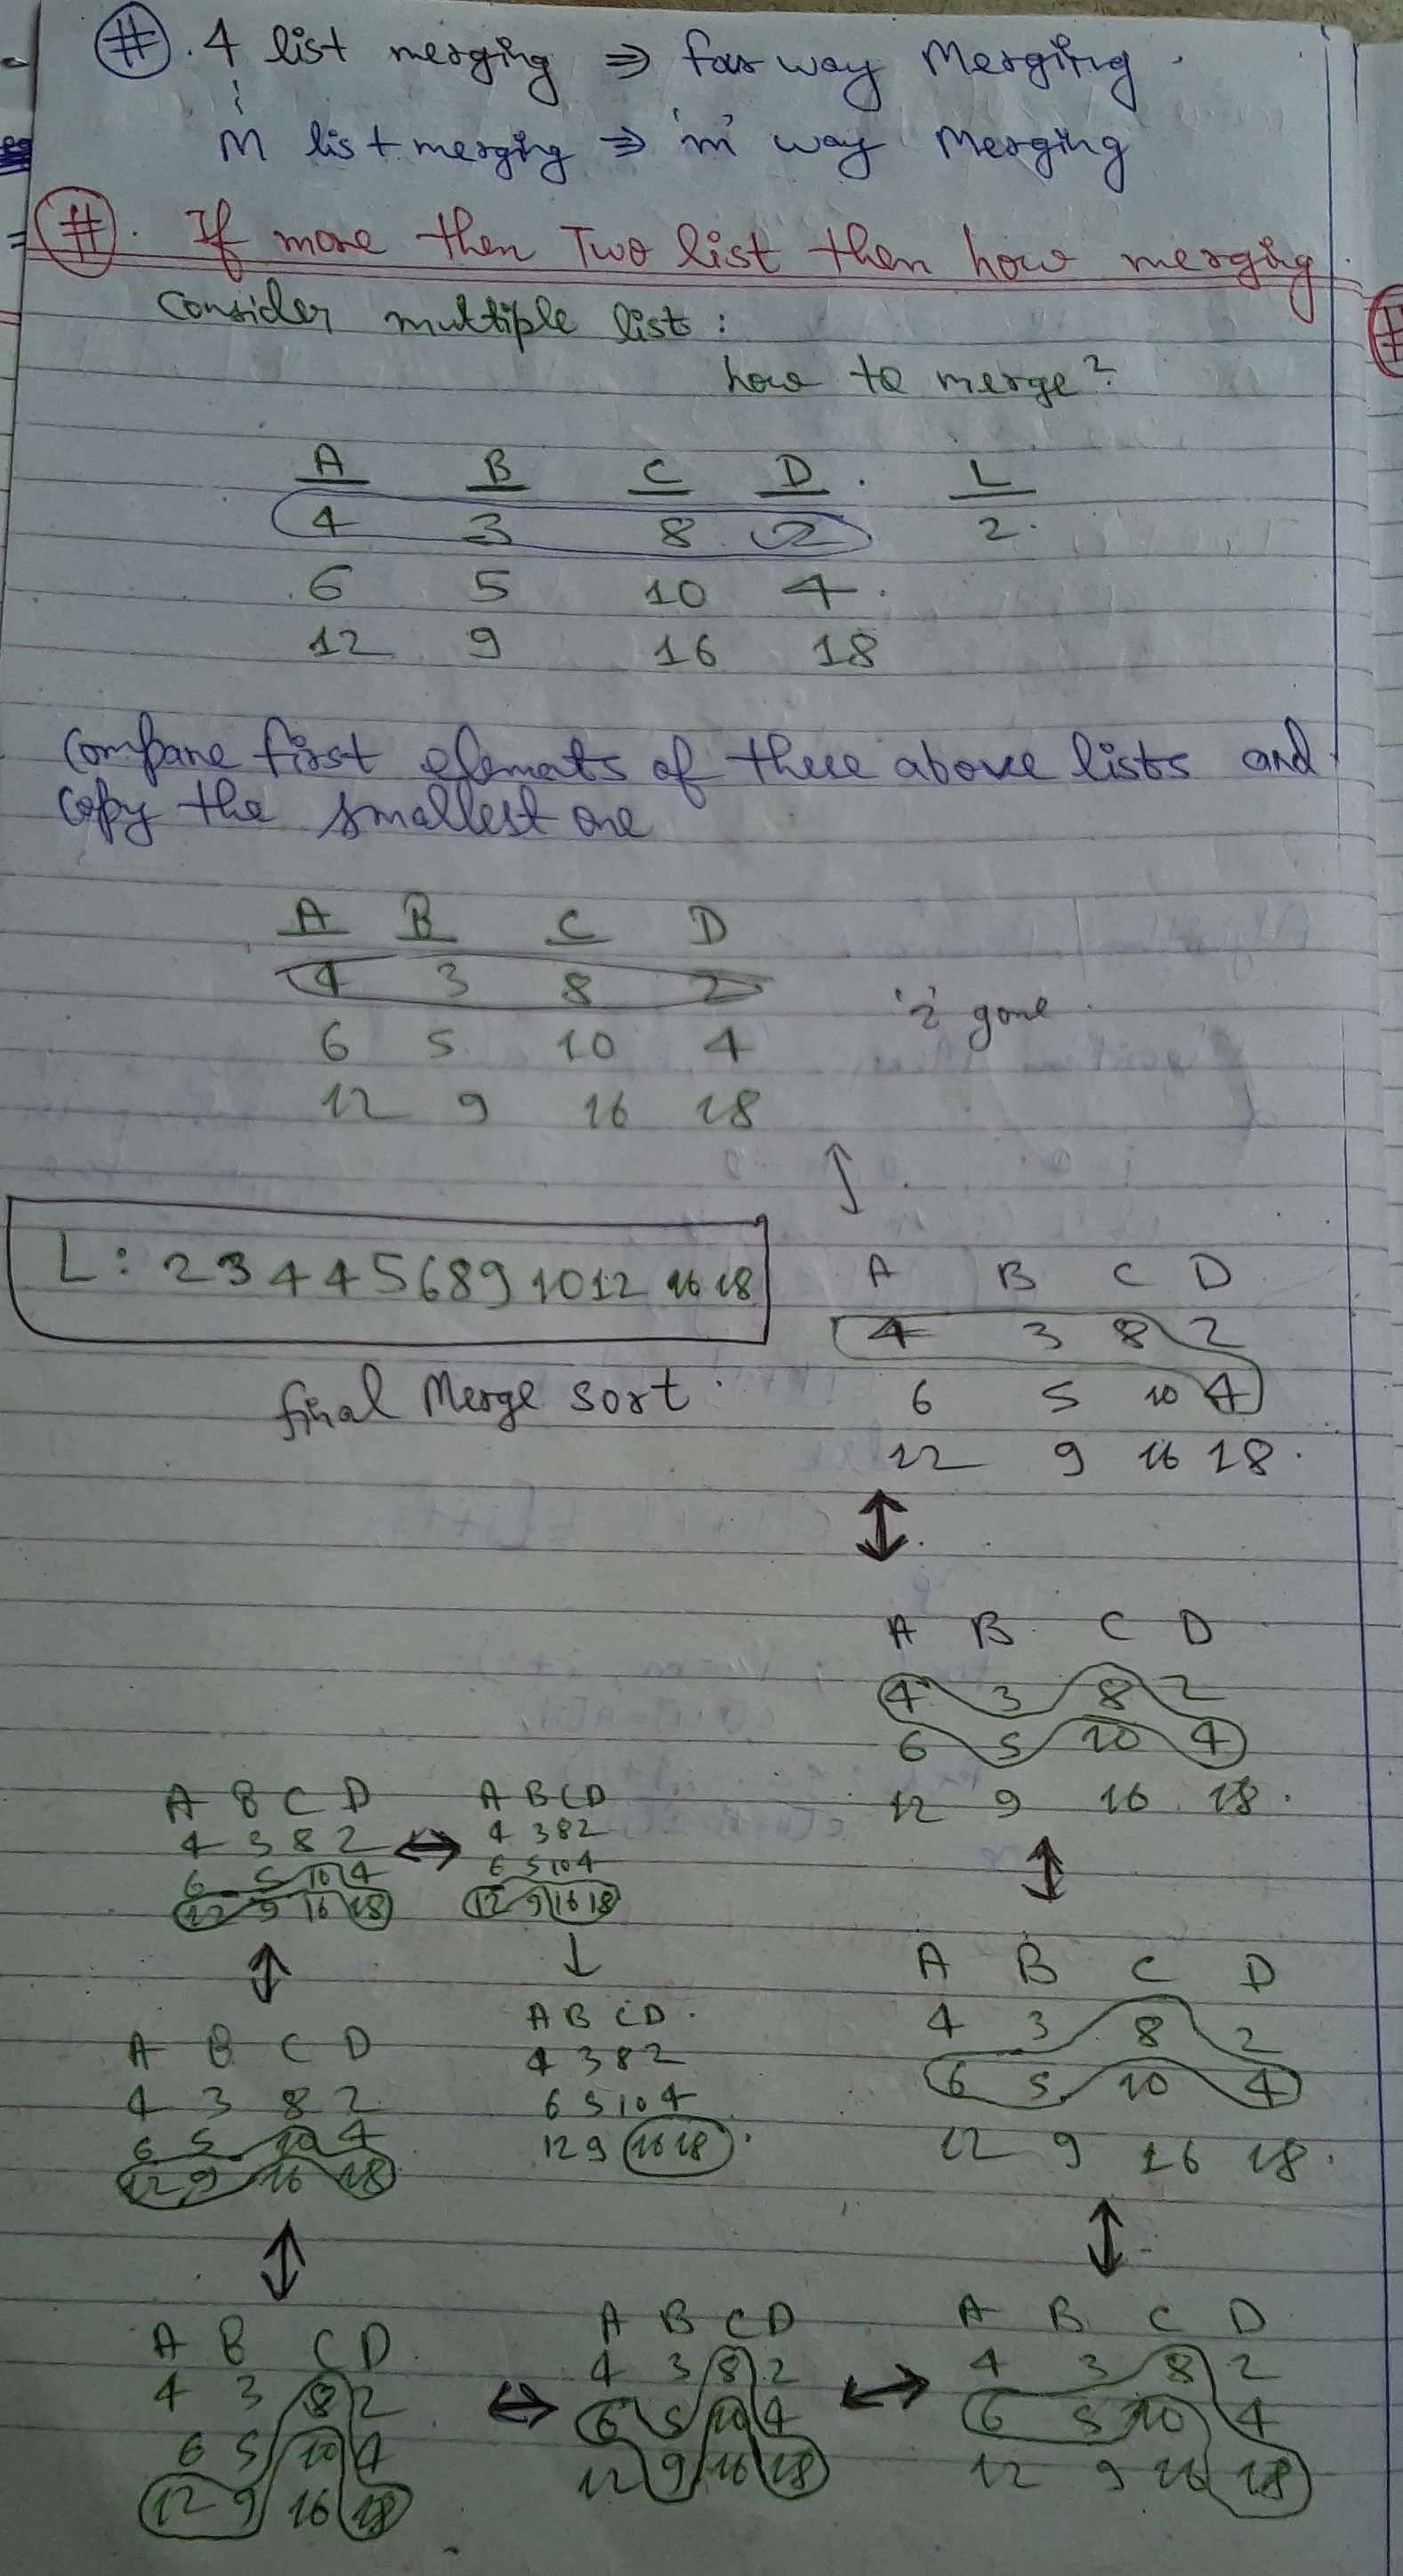 # . 4 list merging ⇒ four way Merging .
M list merging ⇒ 'm' way Merging
# . If more then Two list then how merging .
Consider multiple lists :
how to merge?
A B C D . L
4 3 8 2 2 .
6 5 10 4 .
12 9 16 18
Compare first elements of these above lists and
copy the smallest one
A B C D
4 3 8 2
'2' gone .
6 5 10 4
12 9 16 18
L : 2 3 4 4 5 6 8 9 10 12 16 18
final Merge sort .
A B C D
4 3 8 2
6 5 10 4
12 9 16 18 .
A B C D
4 3 8 2
6 5 10 4
12 9 16 18 .
A B C D
4 3 8 2
6 5 10 4
12 9 16 18 .
A B C D
4 3 8 2
6 5 10 4
12 9 16 18
A B C D
4 3 8 2
6 5 10 4
12 9 16 18
A B C D
4 3 8 2
6 5 10 4
12 9 16 18
A B C D
4 3 8 2
6 5 10 4
12 9 16 18
A B C D
4 3 8 2
6 5 10 4
12 9 16 18
A B C D
4 3 8 2
6 5 10 4
12 9 16 18
A B C D .
4 3 8 2
6 5 10 4
12 9 16 18 .